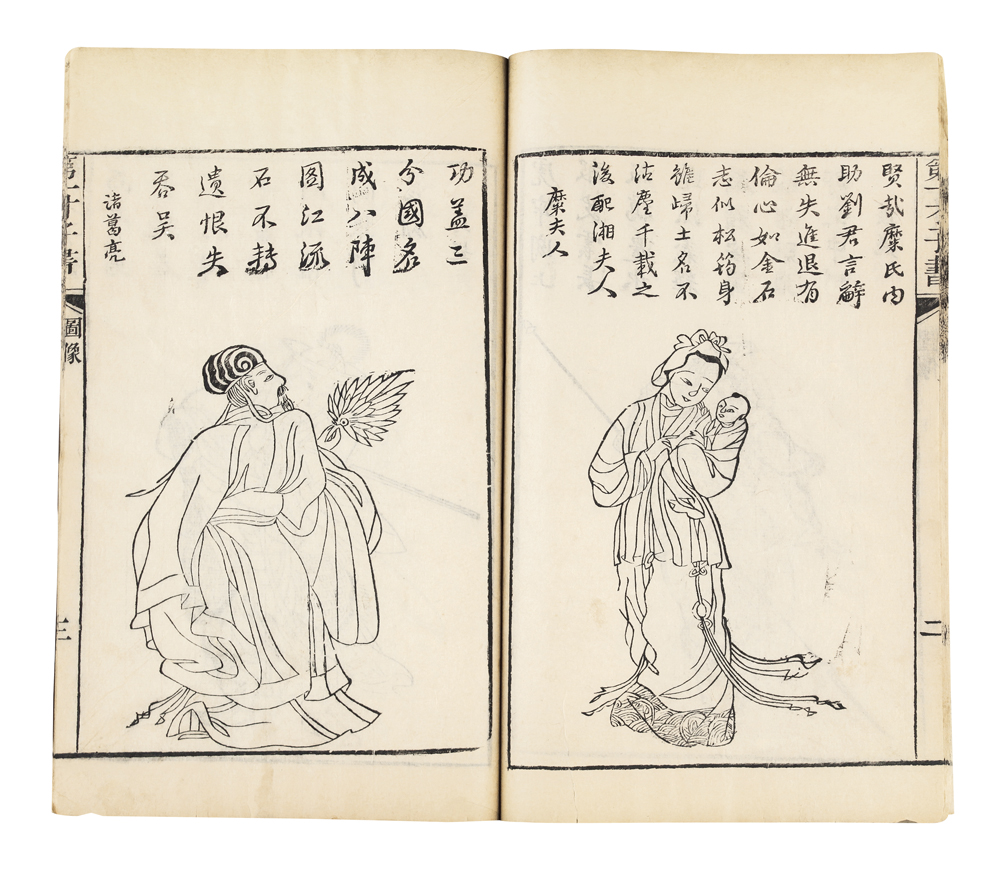 第一才子書
二
賢哉糜氏内
助劉君言辭
無失進退有
倫心如金石
志似松筠身
雖歸土名不
沾塵千載之
後配湘夫人
糜夫人
功盖三
分國名
成八陣
图江流
石不轉
遺恨失
吞吴
諸葛亮
第一才子書
圖像
三